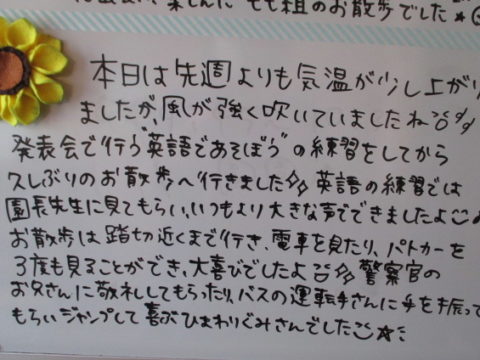 楽しんだ もも組のお散歩でした★
本日は先週よりも気温が少し上がり
ましたが、風が強く吹いていましたね
発表会で行う"英語であそぼう"の練習をしてから
久しぶりのお散歩へ行きました 英語の練習では
園長先生に見てもらい、いつもより大きな声でできましたよ
お散歩は踏切近くまで行き、電車を見たり、パトカーを
3度も見ることができ、大喜びでしたよ 警察官の
お父さんに敬礼してもらったり、バスの運転手さんに手を振って
もらいジャンプして喜ぶひまわりぐみさんでした☆